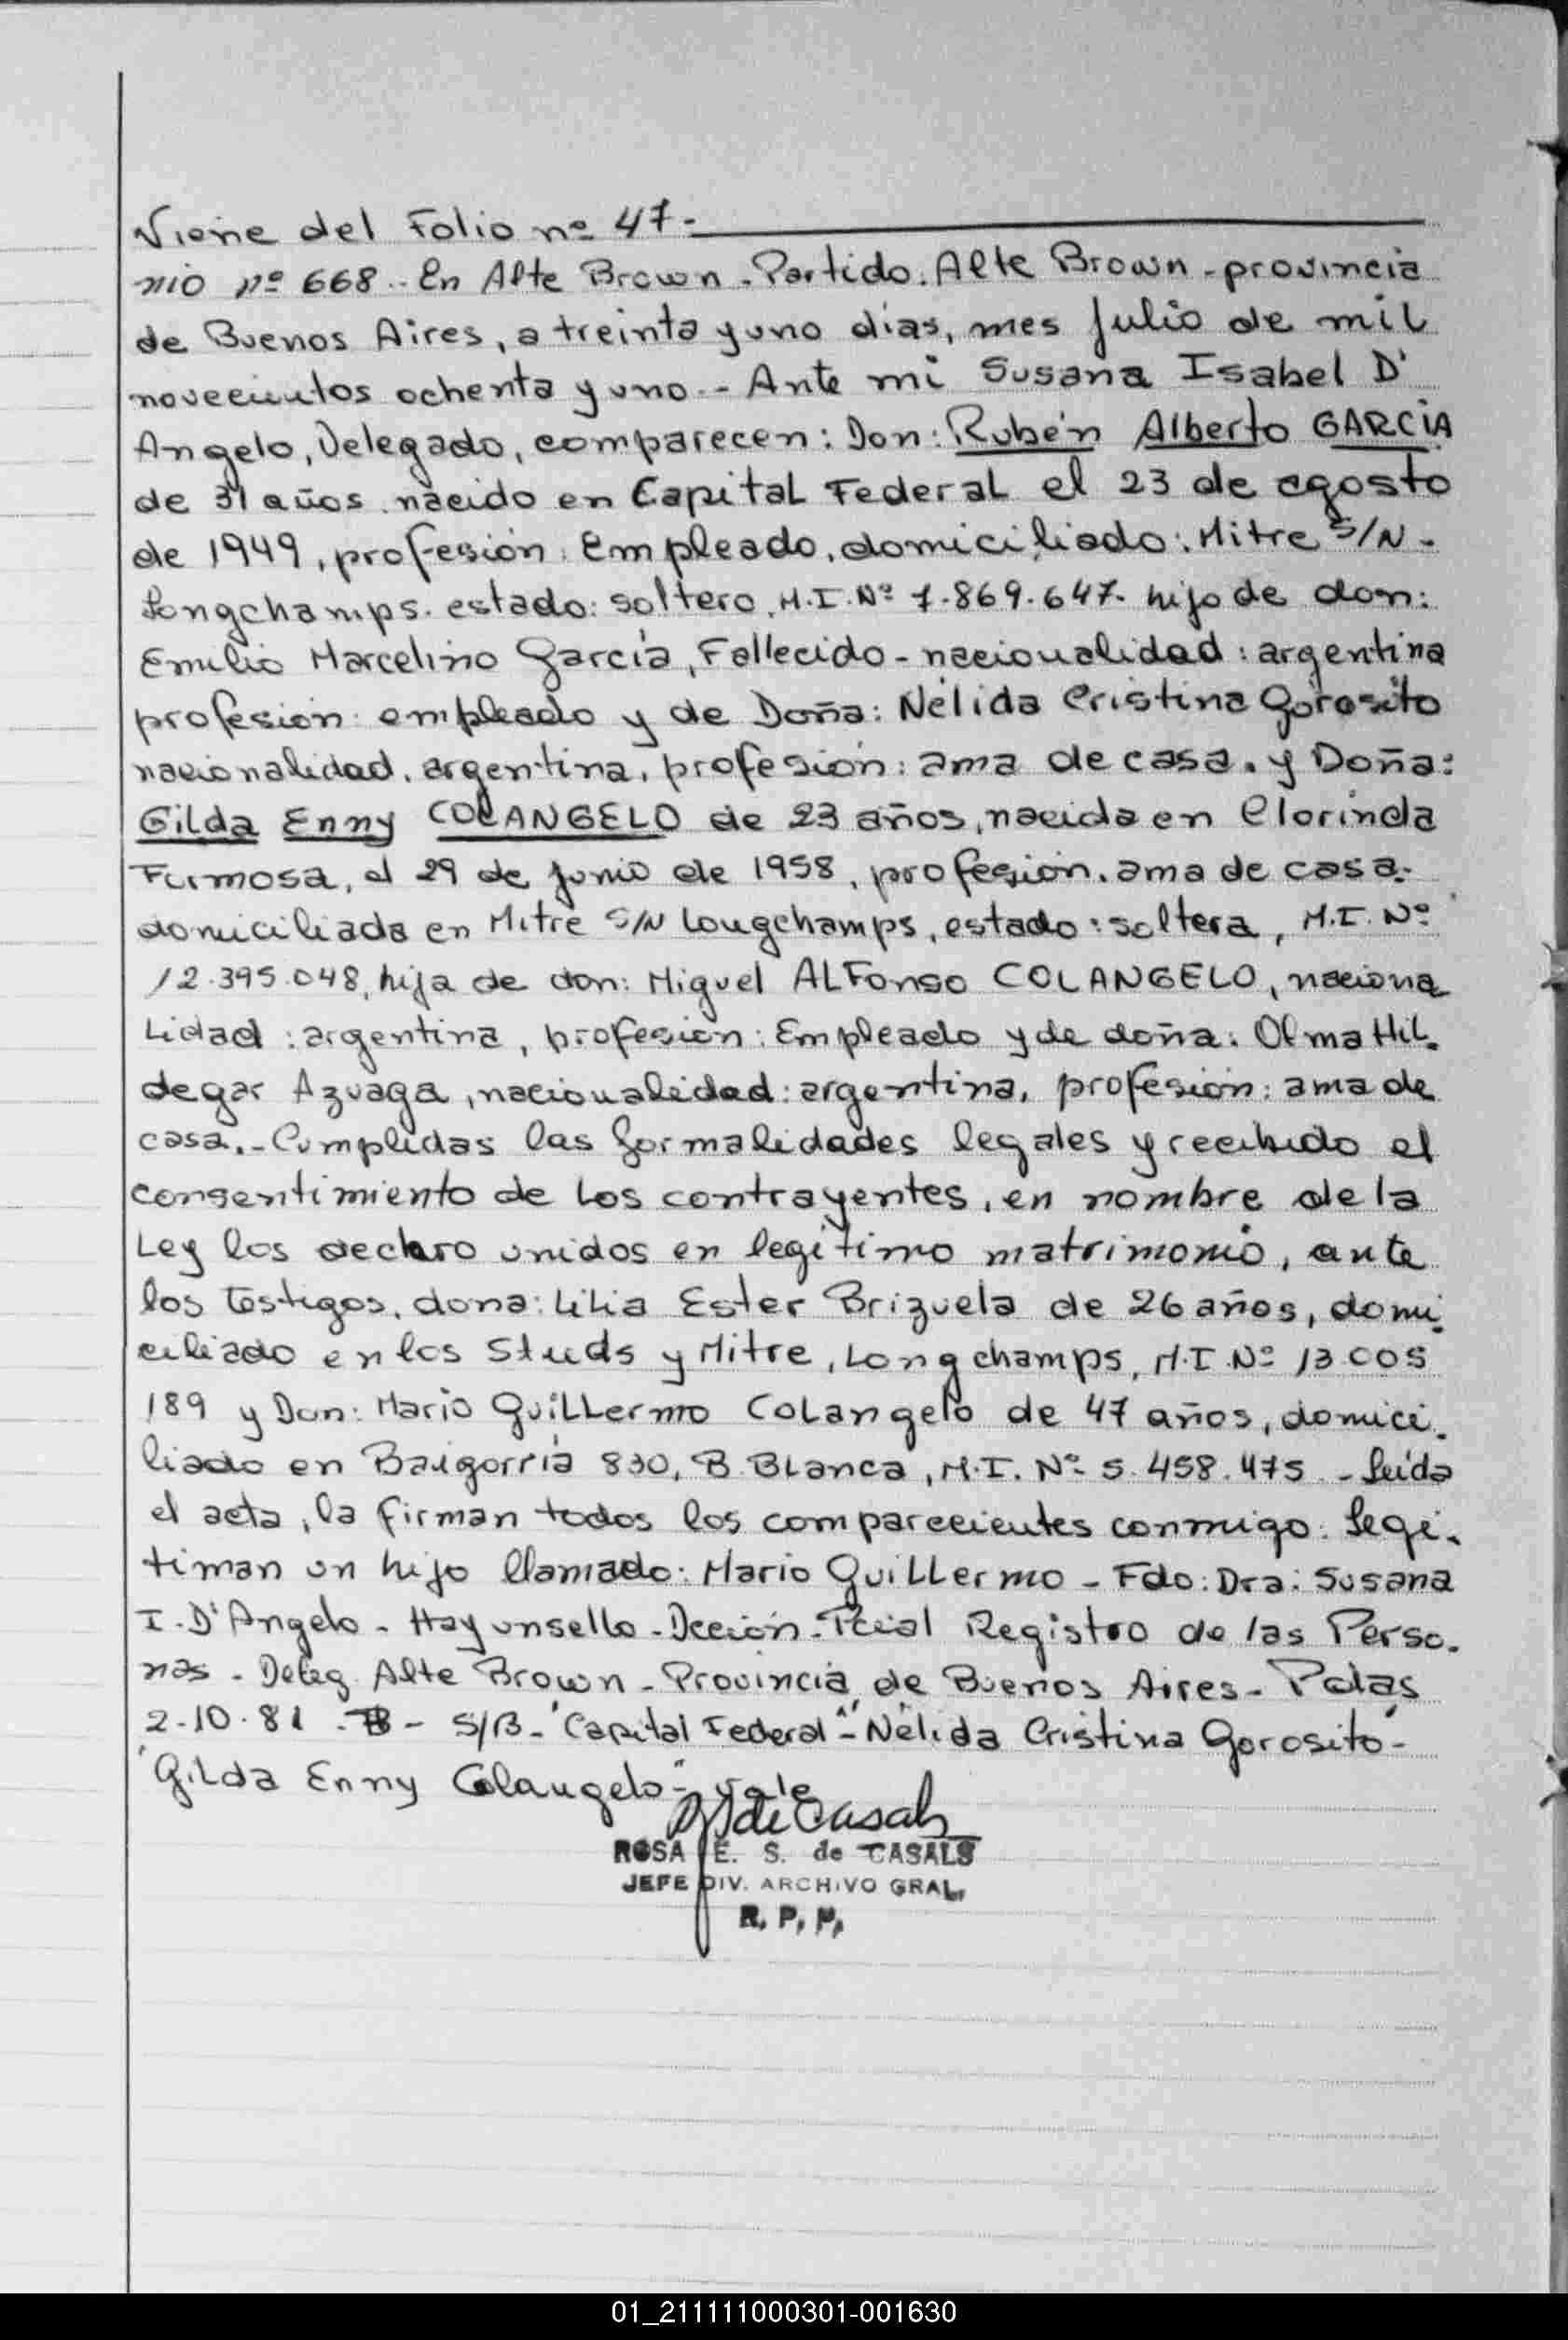 Viene del Folio nº 47.-
nio nº 668.- En Alte Brown - Partido: Alte Brown - provincia
de Buenos Aires, a treinta y uno dias, mes Julio de mil
novecientos ochenta y uno.- Ante mi Susana Isabel D'
Angelo, Delegado, comparecen: Don: Rubén Alberto GARCIA
de 31 años nacido en Capital Federal el 23 de agosto
de 1949, profesión: Empleado, domiciliado: Mitre S/N -
Longchamps. estado: soltero, M.I. Nº 7.869.647. hijo de don:
Emilio Marcelino García, Fallecido - nacionalidad: argentina
profesión: empleado y de Doña: Nélida Cristina Gorosito
nacionalidad, argentina, profesión: ama de casa. y Doña:
Gilda Enny COLANGELO de 23 años, nacida en Clorinda
Formosa, el 29 de Junio de 1958, profesión. ama de casa.
domiciliada en Mitre S/N Longchamps, estado: soltera, M.I. Nº
12.395.048, hija de don: Miguel ALFonso COLANGELO, naciona
Lidad: argentina, profesión: Empleado y de doña: Olma Hil.
degar Azuaga, nacionalidad: argentina, profesión: ama de
casa.- Cumplidas las formalidades legales y recibido el
consentimiento de los contrayentes, en nombre de la
Ley los declaro unidos en legítimo matrimonio, ante
los testigos, dona: Lilia Ester Brizuela de 26 años, domi.
ciliado en los Studs y Mitre, Longchamps, M.I. Nº 13.005
189 y Don: Mario Guillermo Colangelo de 47 años, domici.
liado en Baigorria 830, B. Blanca, M.I. Nº 5.458.475 - Leída
el acta, la firman todos los comparecientes conmigo. Legi.
timan un hijo llamado: Mario Guillermo - Fdo: Dra: Susana
I. D'Angelo - Hay un sello - Dcción - Pcial Registro de las Perso.
nas - Deleg. Alte Brown - Provincia de Buenos Aires - Patas
2-10-81 - B - S/B - "Capital Federal" - "Nélida Cristina Gorosito" -
"Gilda Enny Colangelo" - vale
de Casals
ROSA E. S. de CASALS
JEFE DIV. ARCHIVO GRAL.
R. P. P.
01_211111000301-001630